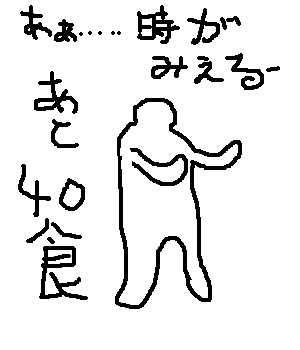 ああ……時が
みえるー
あと
40食